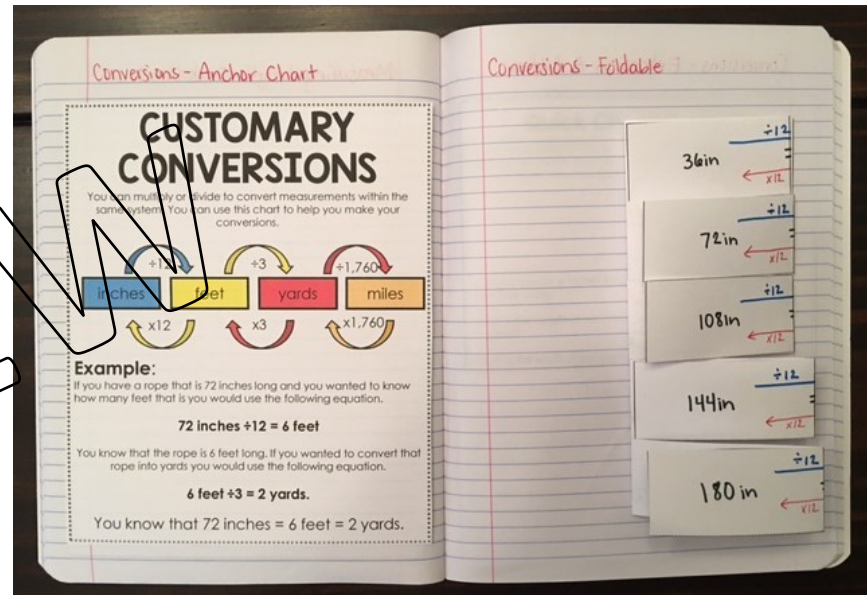 Conversions - Anchor Chart
CUSTOMARY
CONVERSIONS
You can multiply or divide to convert measurements within the
same system. You can use this chart to help you make your
conversions.
÷12 ÷3 ÷1,760
inches feet yards miles
x12 x3 x1,760
Example:
If you have a rope that is 72 inches long and you wanted to know
how many feet that is you would use the following equation.
72 inches ÷12 = 6 feet
You know that the rope is 6 feet long. If you wanted to convert that
rope into yards you would use the following equation.
6 feet ÷3 = 2 yards.
You know that 72 inches = 6 feet = 2 yards.
Conversions - Foldable
÷12
36in =
x12
÷12
72in =
x12
÷12
108in =
x12
÷12
144in =
x12
÷12
180 in =
x12
W